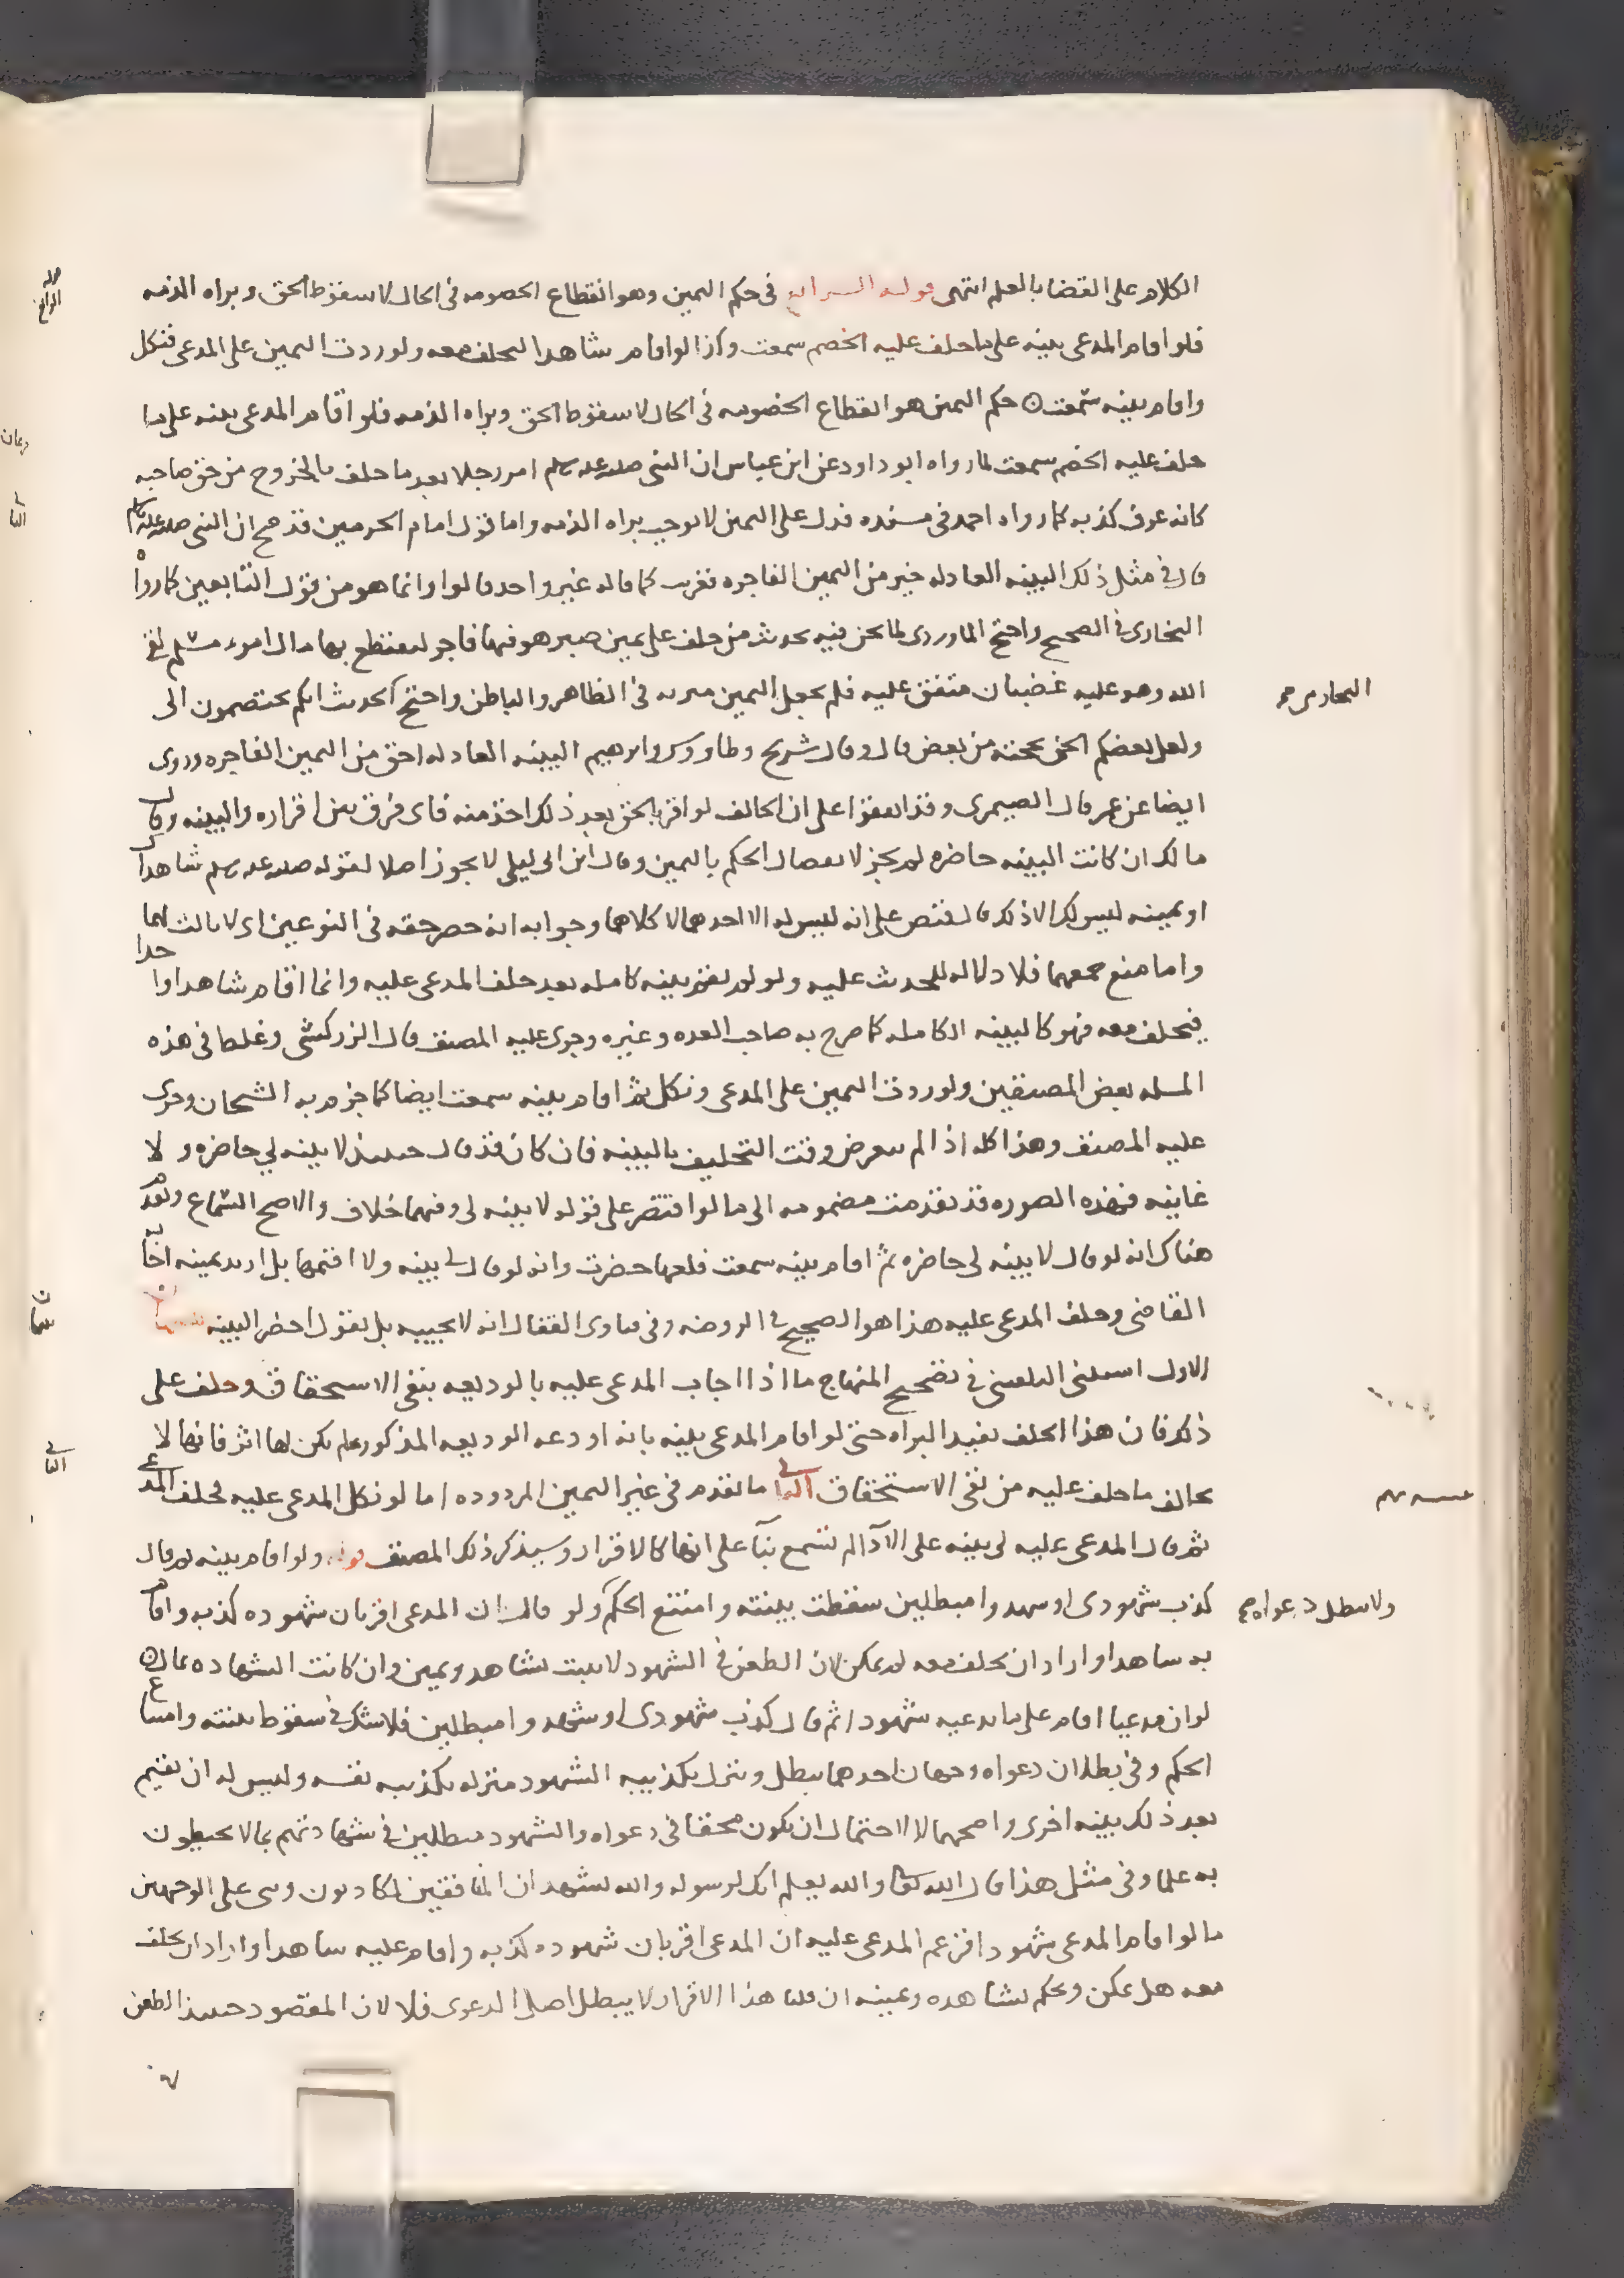 الكلام على القضا بالعلم انتهى قوله الرابع في حكم اليمين وهو انقطاع الخصومه في الحال لا سقوط الحق وبراه الذمه
فلو اقام المدعي بينه على ما حلف عليه الخصم سمعت وكذا لو اقام شاهدا ليحلف معه ولو ردت اليمين على المدعي فنكل
واقام بينه سمعت حكم اليمين هو انقطاع الخصومه في الحال لا سقوط الحق وبراه الذمه فلو اقام المدعي بينه على ما
حلف عليه الخصم سمعت لما رواه ابو داود عن ابن عباس ان النبي صلى الله عليه وسلم امر رجلا بعد ما حلف بالخروج من حق صاحبه
كانه عرف كذبه كما رواه احمد في مسنده فدل على اليمين لا توجب براه الذمه واما قول امام الحرمين قد صح ان النبي صلى الله عليه وسلم
قال في مثل ذلك البينه العادله خير من اليمين الفاجره فغريب كما قاله غير واحد قالوا وانما هو من قول التابعين كما رواه
البخاري في الصحيح واحتج الماوردي لما نحن فيه بحديث من حلف على يمين صبر هو فيها فاجر ليقتطع بها مال امرء مسلم لقي
الله وهو عليه غضبان متفق عليه فلم يجعل اليمين مبريه في الظاهر والباطن واحتج بحديث انكم تختصمون الى
ولعل بعضكم الحن بحجته من بعض قال وقال شريح وطاووس وابرهيم البينه العادله احق من اليمين الفاجره وروي
ايضا عن عمر قال الصيمري وقد اتفقوا على ان الحالف لو اقر بالحق بعد ذلك اخذ منه فاي فرق بين اقراره والبينه وقال
مالك ان كانت البينه حاضره لم يجز لانفصال الحكم باليمين وقال ابن ابي ليلى لا يجوز اصلا لقوله صلى الله عليه وسلم شاهداك
او يمينه ليس لك الا ذلك قال فنص على انه ليس له الا احدهما لا كلاهما وجوابه انه حصر حقه في النوعين اي لا ثالث لهما
واما منع جمعهما فلا دلاله للحديث عليه ولو لم تقم بينه كامله بعد حلف المدعي عليه وانما اقام شاهدا واحدا
فيحلف معه فهو كالبينه الكامله كما صرح به صاحب العده وغيره وجرى عليه المصنف قال الزركشي وغلط في هذه
المسله بعض المصنفين ولو ردت اليمين على المدعي ونكل ثم اقام بينه سمعت ايضا كما جزم به الشيخان وجرى
عليه المصنف وهذا كله اذا لم يتعرض وقت التحليف بالبينه فان كان قد قال حينئذ لا بينه لي حاضره ولا
غايبه فهذه الصوره قد تقدمت مضمومه الى ما لو اقتصر على قوله لا بينه لي وفيهما خلاف والاصح السماع وتقدم
هناك انه لو قال لا بينه لي حاضره ثم اقام بينه سمعت فلعلها حضرت وانه لو قال لي بينه ولا اقيمها بل اريد يمينه اجابه
القاضي وحلف المدعي عليه هذا هو الصحيح في الروضه وفي فتاوى القفال انه لا يجيبه بل يقول احضر البينه
الاول استثنى البلقيني في تصحيح المنهاج ما اذا اجاب المدعي عليه بالوديعه بنفي الاستحقاق وحلف على
ذلك فان هذا الحلف يفيد البراه حتى لو اقام المدعي بينه بانه اودعه الوديعه المذكوره لم يكن لها اثر فانها لا
تخالف ما حلف عليه من نفي الاستحقاق الثاني ما تقدم في غير اليمين المردوده اما لو نكل المدعي عليه فحلف المدعي
ثم قال المدعي عليه لي بينه على الادا لم تسمع بنا على انها كالاقرار وسيذكر ذلك المصنف قوله ولو اقام بينه ثم قال
كذب شهودي او شهدوا مبطلين سقطت بينته وامتنع الحكم ولو قال ان المدعي اقر بان شهوده كذبه واقام
ولا تبطل دعواه صح
به شاهدا واراد ان يحلف معه لم يمكن لان الطعن في الشهود لا يثبت بشاهد ويمين وان كانت الشهاده بمال
لو ان مدعيا اقام على ما يدعيه شهودا ثم قال كذب شهودي او شهدوا مبطلين فلا شك في سقوط بينته وامتناع
الحكم وفي بطلان دعواه وجهان احدهما تبطل وينزل تكذيبه الشهود منزله تكذيبه نفسه وليس له ان يقيم
بعد ذلك بينه اخرى واصحهما لا لاحتمال ان يكون محقا في دعواه والشهود مبطلين في شهادتهم بما لا يحيطون
به علما وفي مثل هذا قال الله تعالى والله يعلم انك لرسوله والله يشهد ان المنافقين لكاذبون وبني على الوجهين
ما لو اقام المدعي شهودا فزعم المدعي عليه ان المدعي اقر بان شهوده كذبه واقام عليه شاهدا واراد ان يحلف
معه هل يمكن ويحكم بشاهده ويمينه ان قلنا هذا الاقرار لا يبطل اصل الدعوى فلا لان المقصود حينئذ الطعن